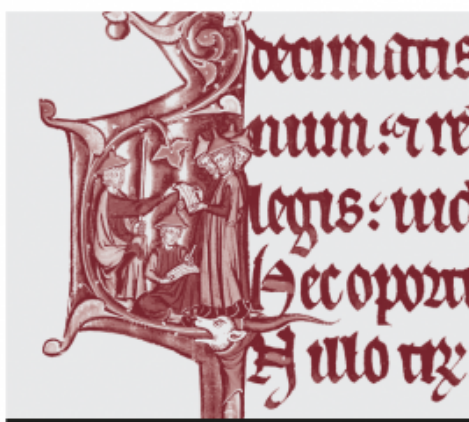 decimatis
num: ⁊ re
legis: iud
Hec oport
illo